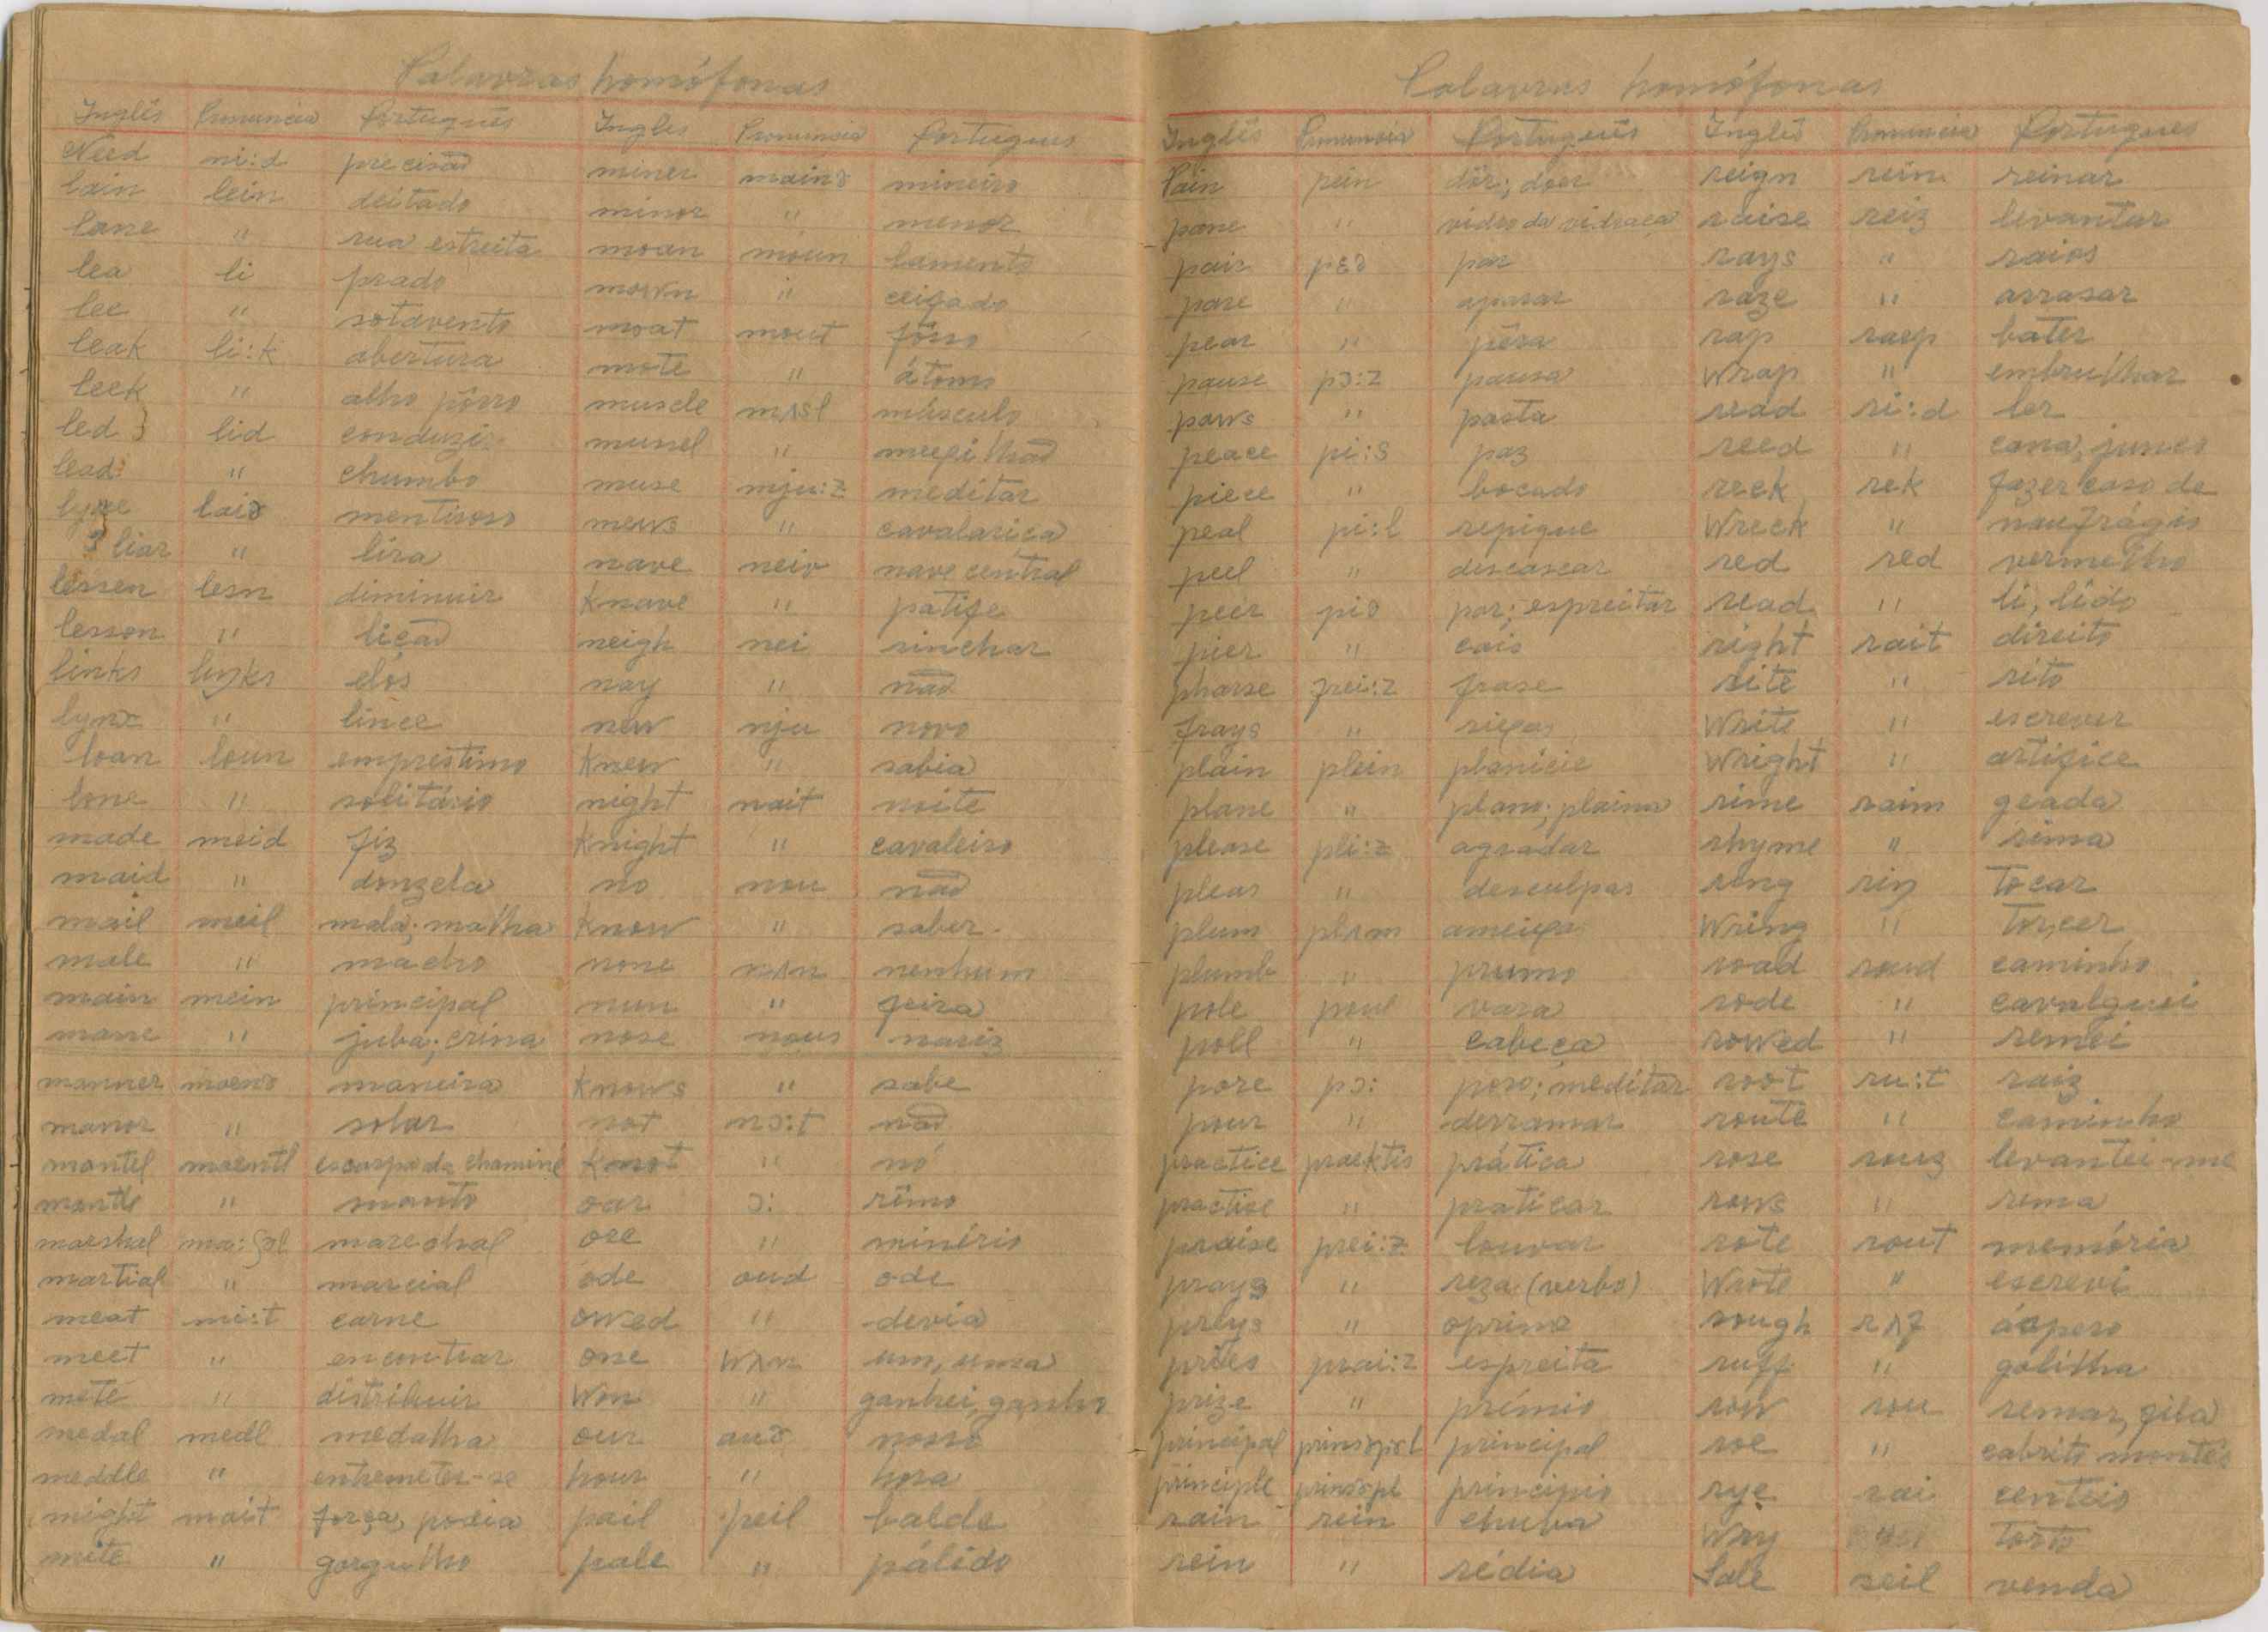 Palavras homófonas
Inglês Pronuncia Português Ingles Pronuncia Portugues
Need ni:d precisão miner mainə mineiro
lain lein deitado minor " menor
lane " rua estreita moan moun lamento
lea li prado mown " ceifado
lee " sotavento moat mout fôsso
leak li:k abertura mote " átomo
leek " alho pôrro muscle mʌsl músculo
led } lid conduzir mussel " mexilhão
lead " chumbo muse mju:z meditar
lyre laiə mentiroso mews " cavalariça
liar " lira nave neiv nave central
lessen lesn diminuir Knave " patife
lesson " lição neigh nei rinchar
links liŋks elos nay " não
lynx " lince new nju novo
loan loun emprestimo Knew " sabia
lone " solitário night nait noite
made meid fiz Knight " cavaleiro
maid " donzela no nou não
mail meil mala; malha Know " saber
male " macho none nʌn nenhum
main mein principal nun " freira
mane " juba; crina nose nous nariz
manner maenə maneira Knows " sabe
manor " solar not nɔ:t não
mantel maentl escarpa da chaminé Knot " nó
mantle " manto oar ɔ: rêmo
marshal ma:ʃəl marechal ore " minério
martial " marcial ode oud ode
meat mi:t carne owed " devia
meet " encontrar one wʌn um, uma
mete " distribuir Won " ganhei, ganho
medal medl medalha our auə nosso
meddle " entremeter-se hour " hora
might mait força, podia pail peil balde
mite " gorgulho pale " pálido
Palavras homófonas
Inglês Pronuncia Português Inglês Pronuncia Portugues
Pain pein dôr; doer reign rein reinar
pane " vidro da vidraça raise reiz levantar
pair pɛə par rays " raios
pare " aparar raze " arrasar
pear " pêra rap raep bater
pause pɔ:z pausa Wrap " embrulhar
paws " pasta read ri:d ler
peace pi:s paz reed " cana, junco
piece " bocado reck rek fazer caso de
peal pi:l repique Wreck " naufrágio
peel " descascar red red vermelho
peer piə par; espreitar read " li, lido
pier " cais right rait direito
pharse frei:z frase rite " rito
frays " rixas Write " escrever
plain plein planície Wright " artifice
plane " plano; plaina rime raim geada
please pli:z agradar rhyme " rima
pleas " desculpas ring riŋ tocar
plum plʌm ameixa Wring " torcer
plumb " prumo road roud caminho
pole poul vara rode " cavalguei
poll " cabeça rowed " remei
pore pɔ: poro; meditar root ru:t raiz
pour " derramar route " caminho
practice praektis prática rose rouz levantei-me
practise " praticar rows " rema
praise prei:z louvar rote rout memória
prays " reza (verbo) Wrote " escrevi
preys " oprime rough rʌf áspero
pries prai:z espreita ruff " golilha
prize " prémio row rou remar, fila
principal prinsəpəl principal roe " cabrito montês
principle prinsəpl principio rye rai centeio
rain rein chuva Wry " torto
rein " rédia Sale seil venda